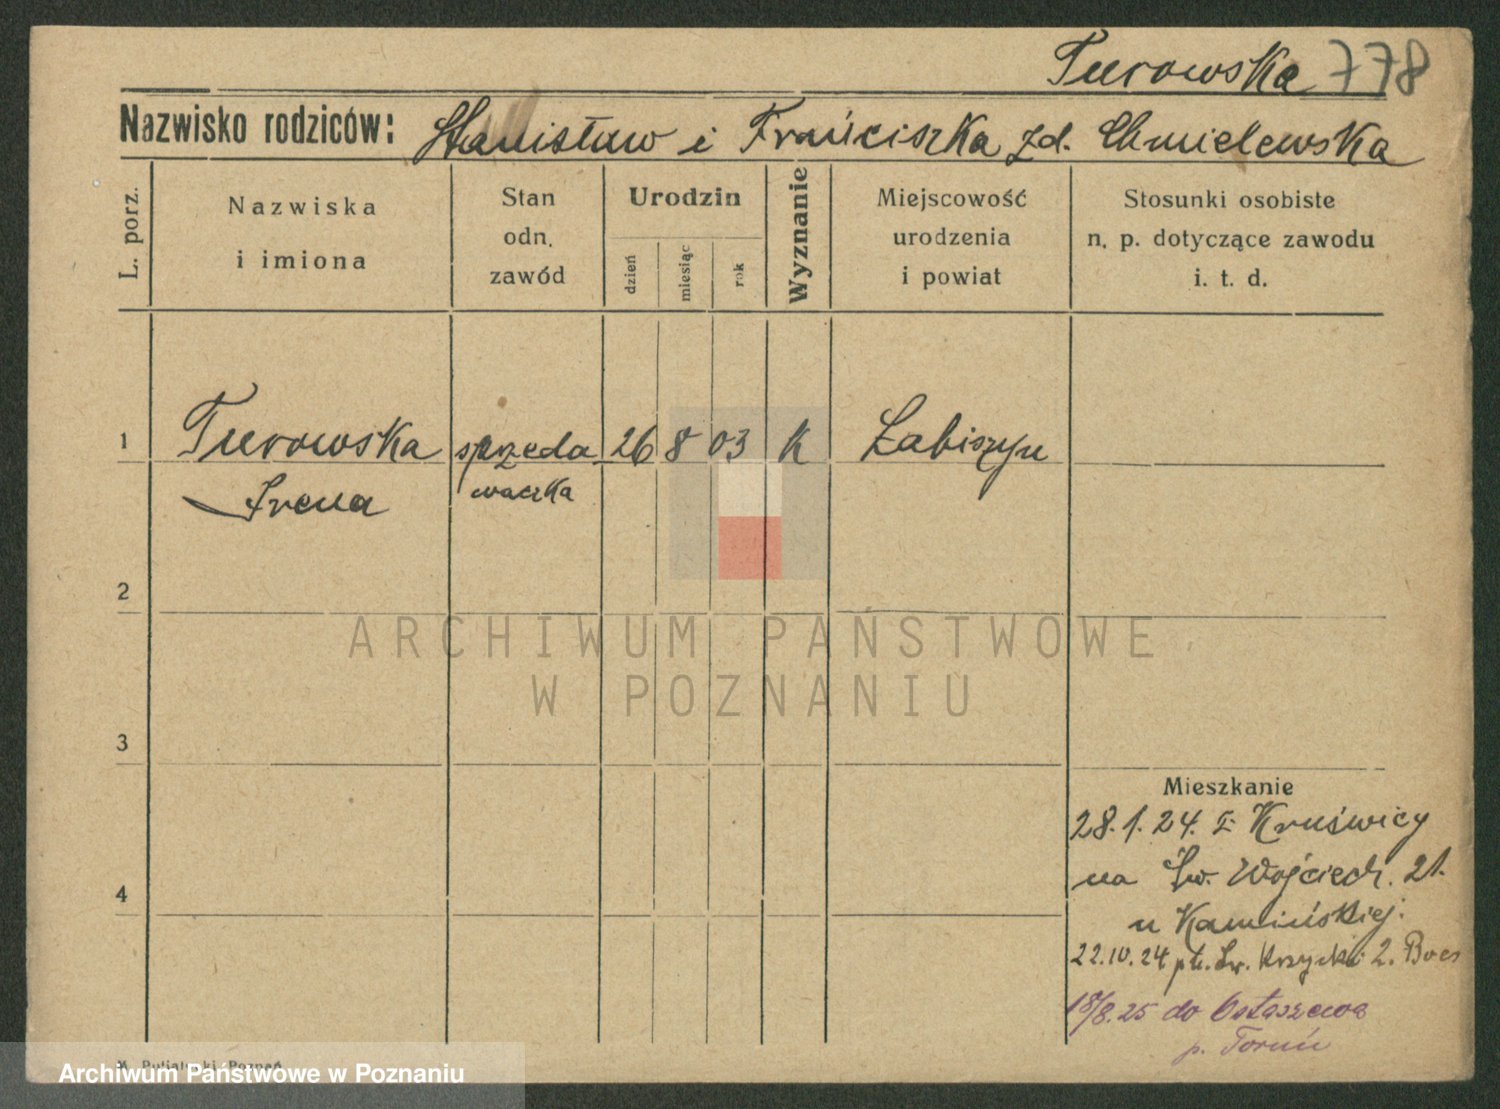 Turowska 778
Nazwisko rodziców: Stanisław i Franciszka zd. Chmielewska
L. porz.
Nazwiska
i imiona
Stan
odn.
zawód
Urodzin
dzień
miesiąc
rok
Wyznanie
Miejscowość
urodzenia
i powiat
Stosunki osobiste
n. p. dotyczące zawodu
i. t. d.
1 Turowska sprzeda 26 8 03 k Łabiszyn
Irena waczka
2
ARCHIWUM PAŃSTWOWE
W POZNANIU
3
Mieszkanie
28.1.24. z Kruświcy
4 na Św. Wojciech. 21.
u Kamińskiej.
22.10.24
18/8.25 do Ostaszewa
p. Toruń
Archiwum Państwowe w Poznaniu